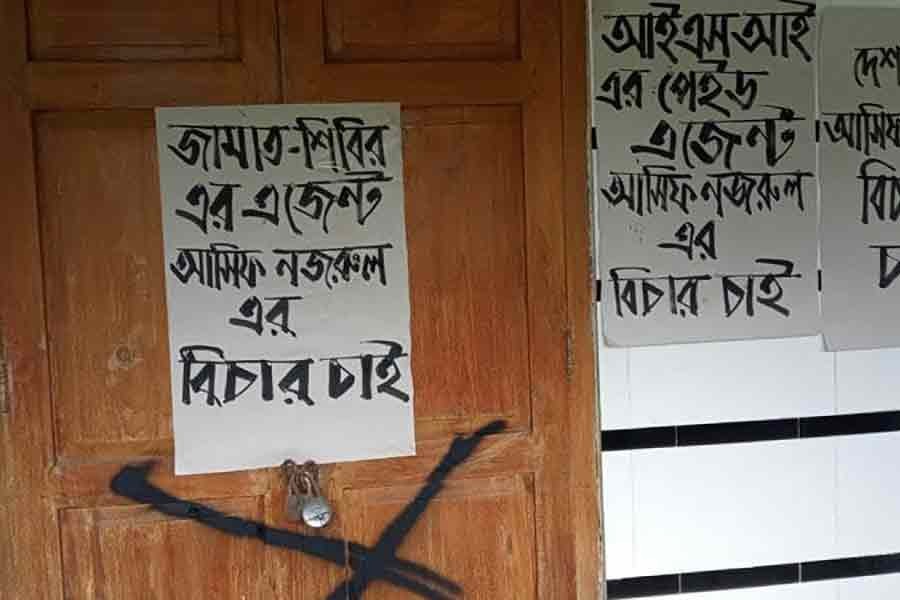 জামাত-শিবির
এর এজেন্ট
আসিফ নজরুল
এর
বিচার চাই
আইএসআই
এর পেইড
এজেন্ট
আসিফ নজরুল
এর
বিচার চাই